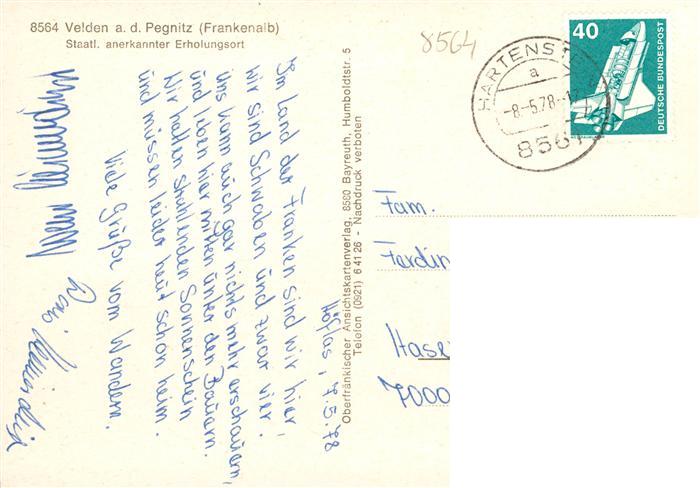 8564 Velden a. d. Pegnitz (Frankenalb)
Staatl. anerkannter Erholungsort
8564
40
DEUTSCHE BUNDESPOST
HARTENST
a
-8.-5.78.-12
8561
Höflas, 7.5.78
Im Land der Franken sind wir hier,
wir sind Schwaben und zwar vier.
Uns kann auch gar nichts mehr erschauern,
und leben hier mitten unter den Bauern.
Wir hatten strahlenden Sonnenschein
und müssen leider heut schon heim.
Viele Grüße vom Wandern.
Oberfränkischer Ansichtskartenverlag, 8580 Bayreuth, Humboldtstr. 5
Telefon (0921) 6 41 26 - Nachdruck verboten
Fam.
Ferdin
Hase
7000